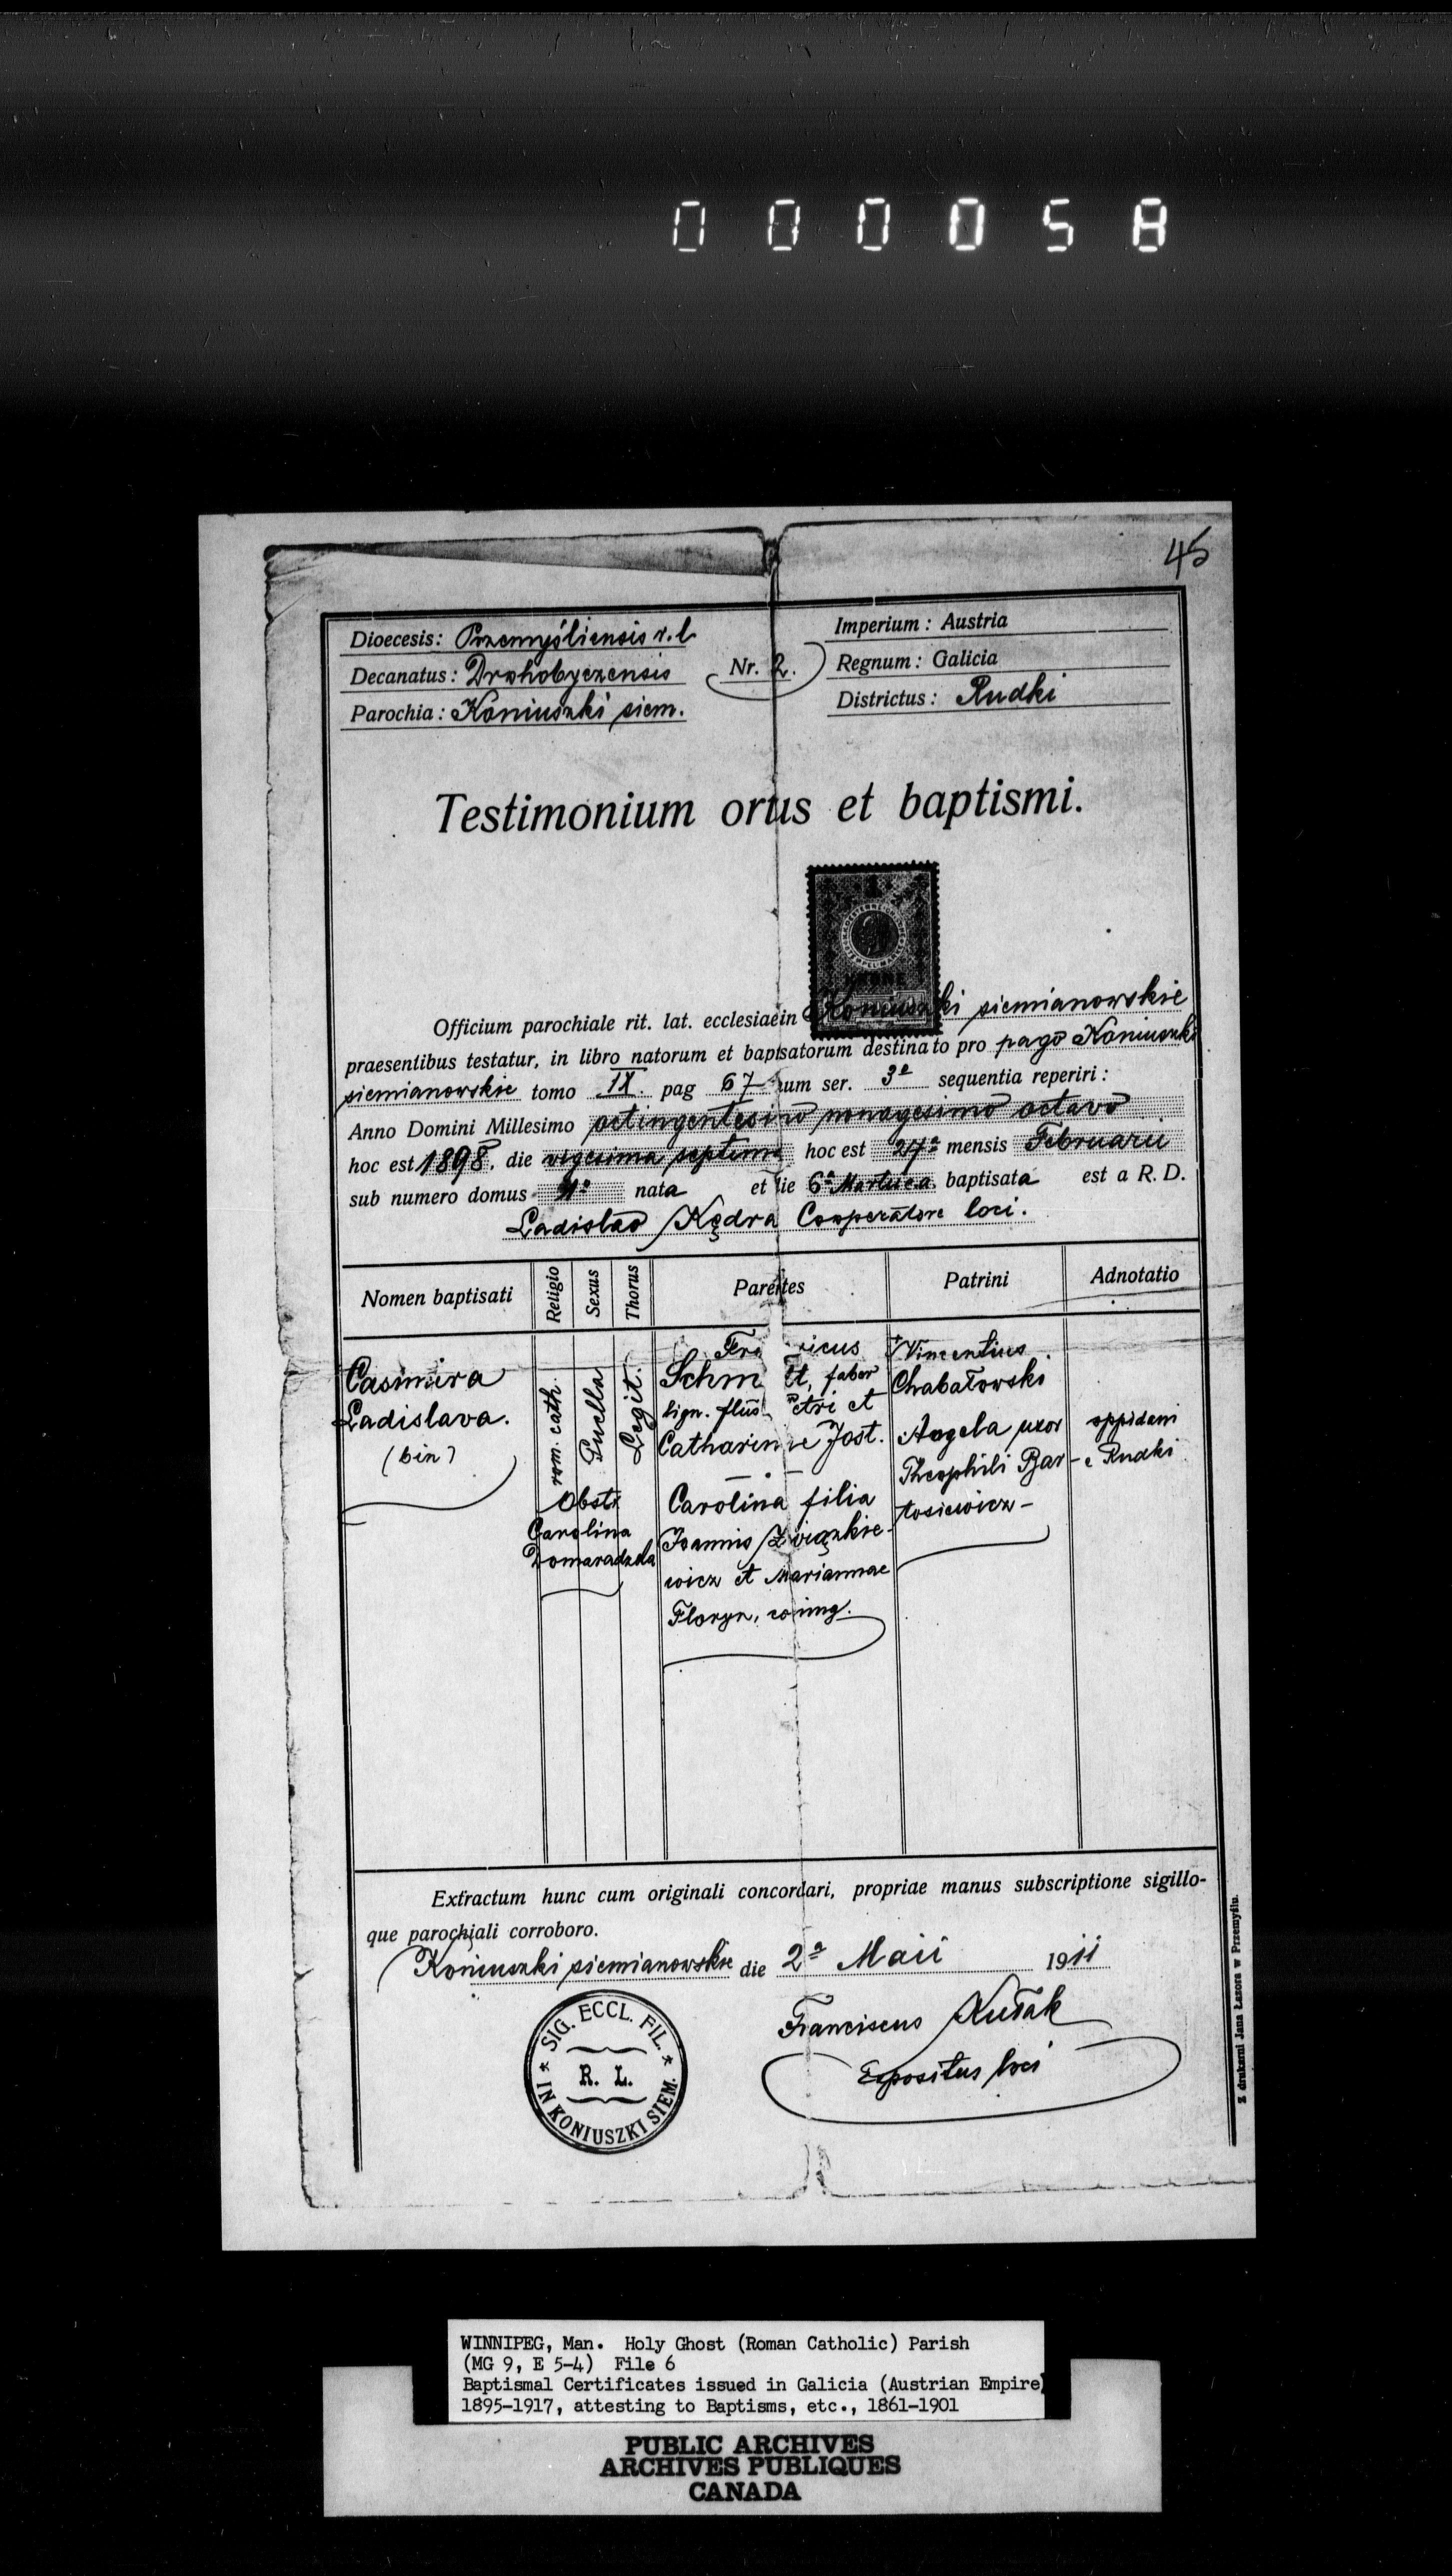 000058
45
Dioecesis: Przemyśliensis r. l.
Decanatus: Drohobyczensis
Parochia: Koniuszki siem.
Nr. 2.
Imperium: Austria
Regnum: Galicia
Districtus: Rudki
Testimonium ortus et baptismi.
Officium parochiale rit. lat. ecclesiae in Koniuszki siemianowskie
praesentibus testatur, in libro natorum et baptisatorum destinato pro pago Koniuszki
siemianowskie tomo IX. pag 67 num ser. 3a sequentia reperiri:
Anno Domini Millesimo octingentesimo nonagesimo octavo
hoc est 1898. die vigesima septima hoc est 27a mensis Februarii
sub numero domus nata et die 6a baptisata est a R. D.
Ladislao Kędra Cooperatore loci.
Nomen baptisati
Religio
Sexus
Thorus
Parentes
Patrini
Adnotatio
Casimira
Ladislava.
(bin)
rom. cath.
Puella
Legit.
Obst.
Carolina
Domaradzka
Fri icus
Schm t, faber
lign. flius Petri et
Catharinae Jost.
Carolina filia
Joannis Związkie-
wicz et Mariannae
Floryn, coniug.
Vincentius
Chabałowski
Angela uxor
Theophili Bar-
tosiewicz -
oppidani
e Rudki
Extractum hunc cum originali concordari, propriae manus subscriptione sigillo-
que parochiali corroboro.
Koniuszki siemianowskie die 2a Maii 1911
Franciscus Kułak
Expositus loci
* SIG. ECCL. FIL. *
R. L.
IN KONIUSZKI SIEM.
Z drukarni Jana Łazora w Przemyślu.
WINNIPEG, Man. Holy Ghost (Roman Catholic) Parish
(MG 9, E 5-4) File 6
Baptismal Certificates issued in Galicia (Austrian Empire)
1895-1917, attesting to Baptisms, etc., 1861-1901
PUBLIC ARCHIVES
ARCHIVES PUBLIQUES
CANADA